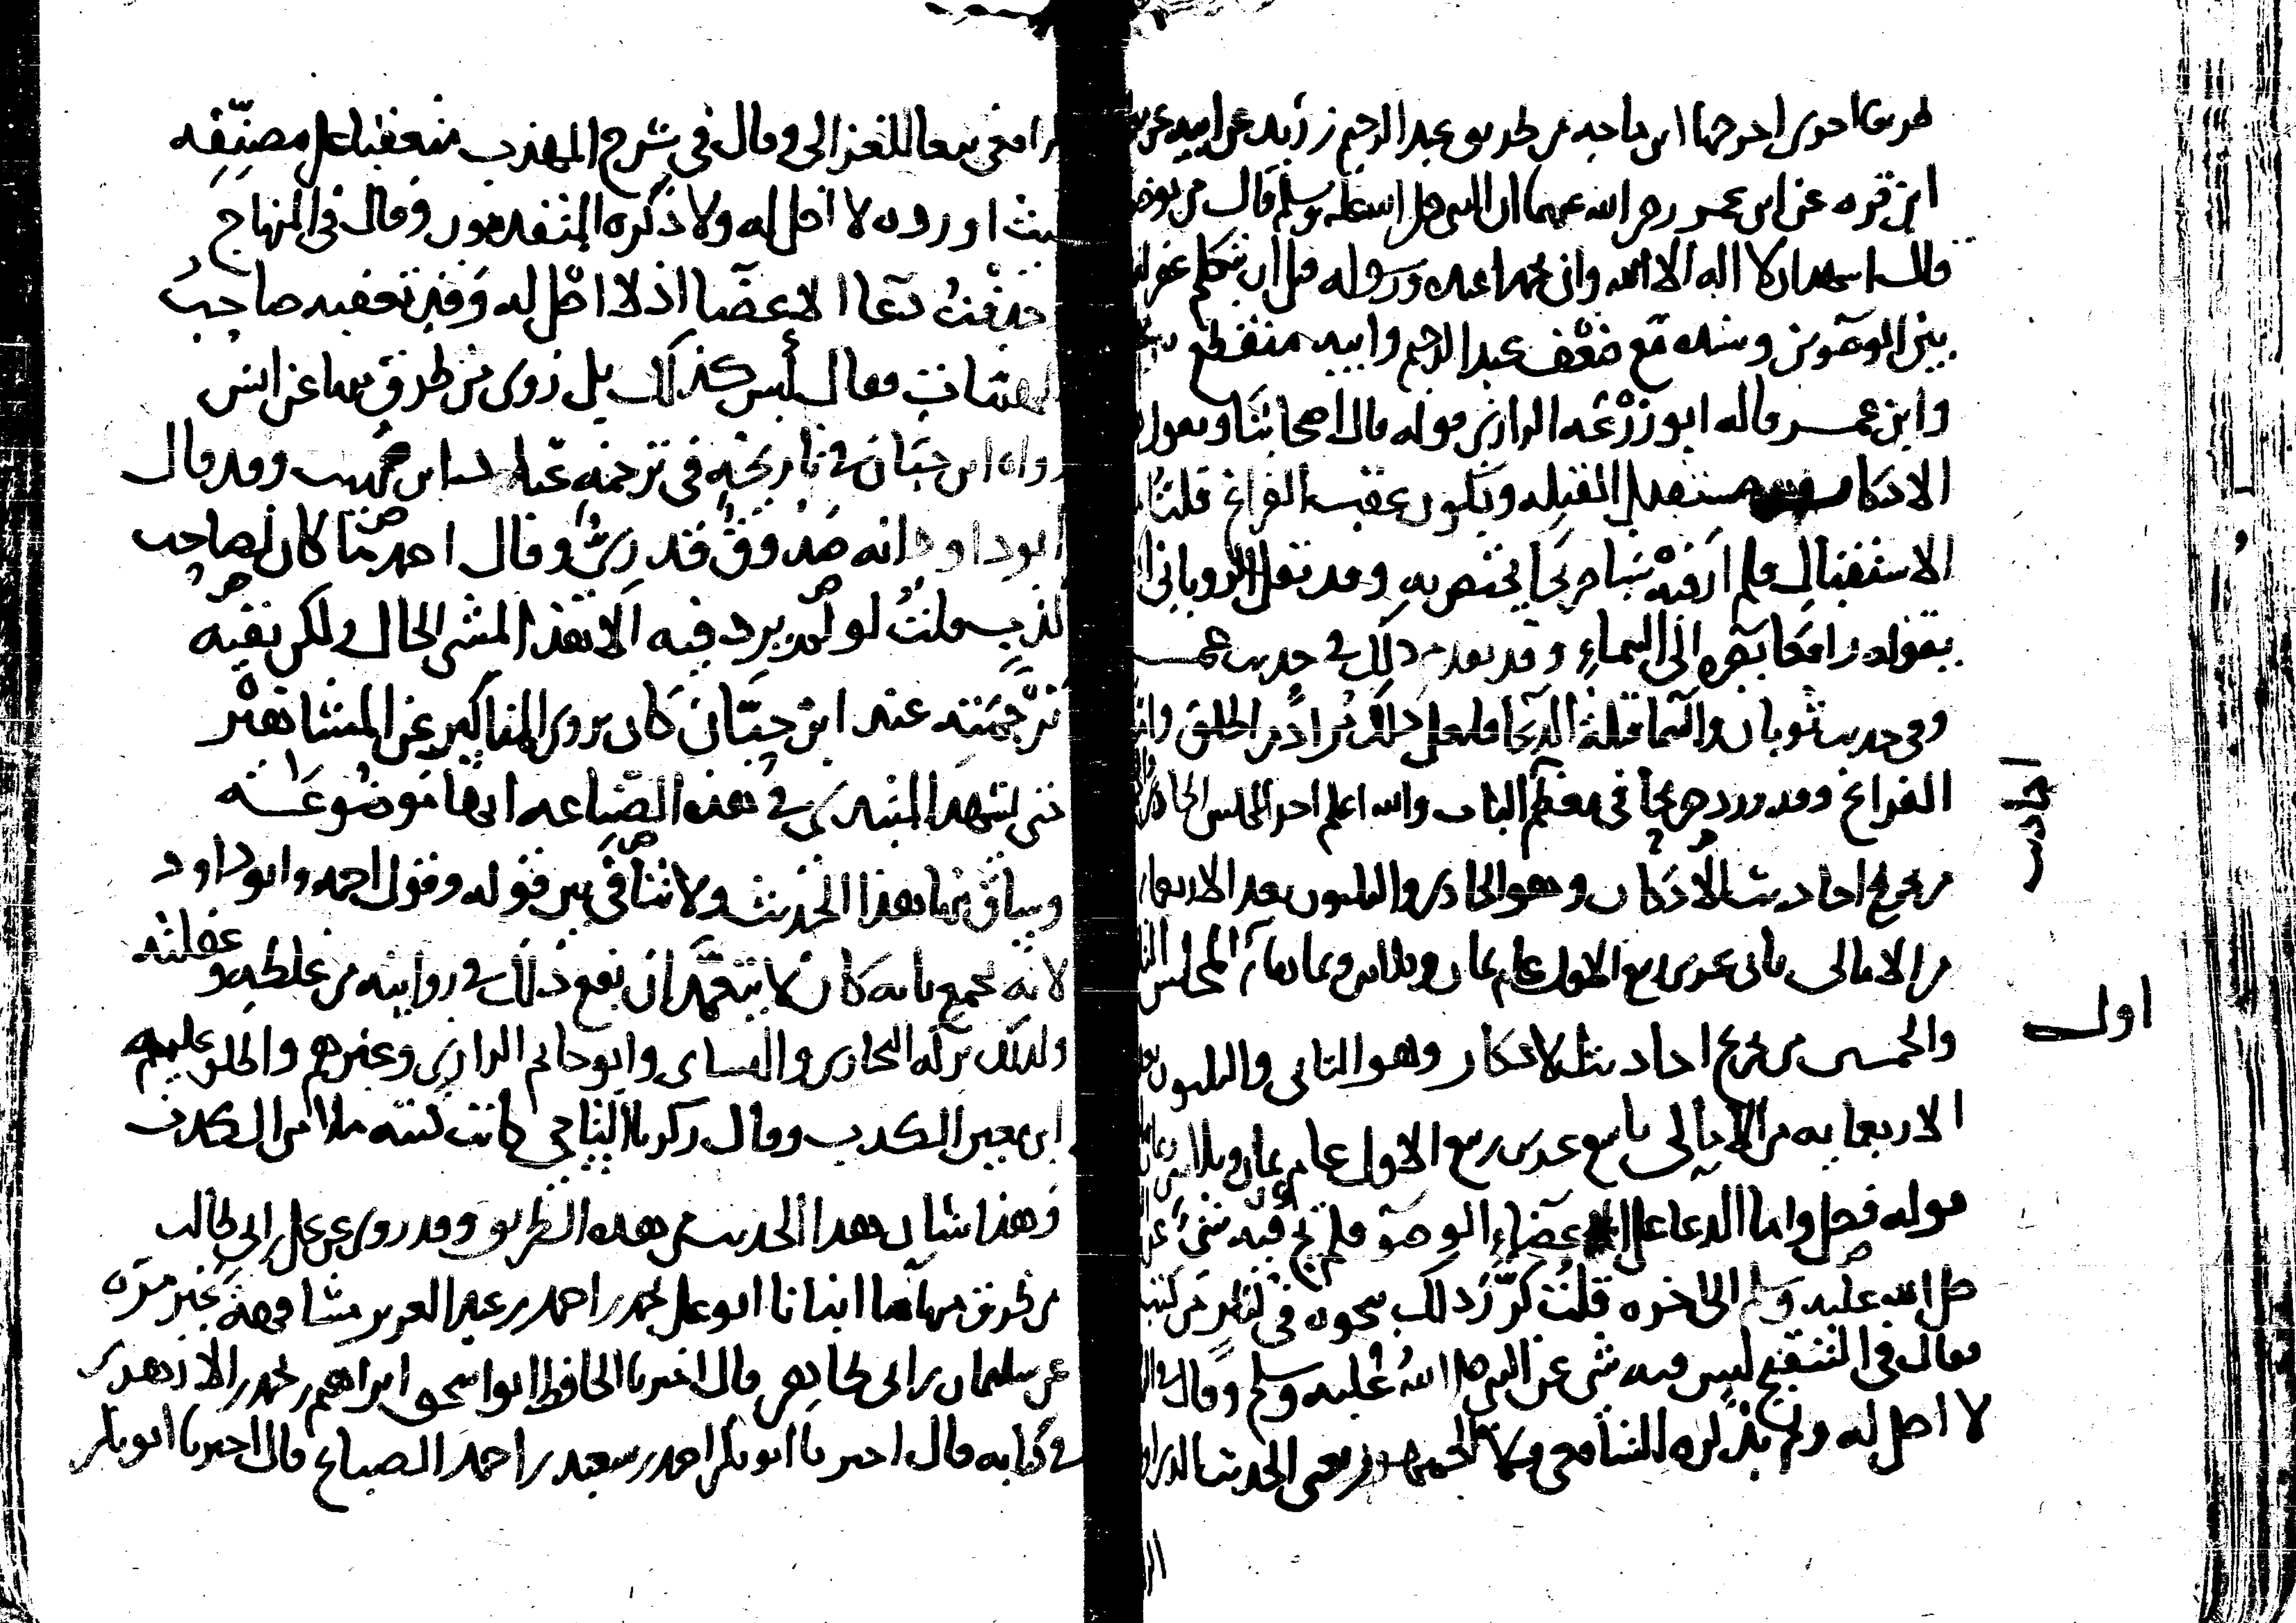 طريقا اخرى اخرجها ابن ماجه من طريق عبد الرحيم بن زيد عن ابيه عن
ابن قره عن ابن عمر رضي الله عنهما ان النبي صلى الله عليه وسلم قال من توضا
قال اشهد ان لا اله الا الله وان محمدا عبده ورسوله قبل ان يتكلم غفر له
بين الوضوين وسنده مع ضعف عبد الرحيم وابيه منقطع
وابن عمر قاله ابو زرعه الرازي قوله قال اصحابنا ويقول
الاذكار مستقبل القبله ويكون عقب الفراغ قلت
الاستقبال فلم ار فيه شيا صريحا يختص به وقد نقل الروياني
بقوله رافعا بصره الى السماء وقد تقدم ذلك في حديث عمر
وفي حديث ثوبان والسما قبلة الدعا فلعل ذلك مراد من اطلق
الفراغ وقد ورد صريحا في معظم الباب والله اعلم اخر المجلس الحادي
من تخريج احاديث الاذكار وهو الحادي والثلثون بعد الاربعمايه
من الامالي ثاني عشر ربيع الاول عام ثمان وثلاثين وثمانمائه المجلس
والخمسين من تخريج احاديث الاذكار وهو الثاني والثلثون بعد
الاربعمايه من الامالي تاسع عشر ربيع الاول عام ثمان وثلاثين
قوله فصل واما الدعا على اعضاء الوضوء فلم يجئ فيه شيء عن
صلى الله عليه وسلم الى اخره قلت كرر ذلك بنحوه في كثير من كتبه
فقال في التنقيح ليس فيه شي عن النبي صلى الله عليه وسلم وقال في
لا اصل له ولم يذكره الشافعي ولا الجمهور يعني الحديث الذي
اول
الرافعي تبعا للغزالي وقال في شرح المهذب متعقبا على مصنفه
حيث اورده لا اصل له ولا ذكره المتقدمون وقال في المنهاج
حذفت دعا الاعضا اذ لا اصل له وقد تعقبه صاحب
المهمات فقال ليس كذلك بل روي من طرق منها عن انس
رواه ابن حبان في تاريخه في ترجمة عباد بن صهيب وقد قال
ابو داود انه صدوق قدري وقال احمد ما كان لصاحب
كذب قلت لو لم يرد فيه الا هذا لمشى الحال ولكن بقيه
ترجمته عند ابن حبان كان يروي المناكير عن المشاهير
حتى يشهد المبتدي في هذه الصناعه انها موضوعه
وساق منها هذا الحديث ولا تنافي بين قوله وقول احمد وابو داود
لانه يجمع بانه كان لا يتعمد ان يقع ذلك في روايته من غلطه وغفلته
ولذلك تركه البخاري والنسائي وابو حاتم الرازي وغيرهم واطلق عليه
ابن معين الكذب وقال زكريا الساجي كانت كتبه ملا من الكذب
وهذا شان هذا الحديث من هذه الطريق وقد روي عن علي بن ابي طالب
من طرق منها ما انبانا ابو علي محمد بن احمد بن عبد العزيز مشافهة غير مره
عن سليمان بن ابي طاهر قال اخبرنا الحافظ ابو اسحق ابراهيم بن محمد بن الازهر
في كتابه قال اخبرنا ابو بكر احمد بن سعيد بن احمد الصباغ قال اخبرنا ابو بكر